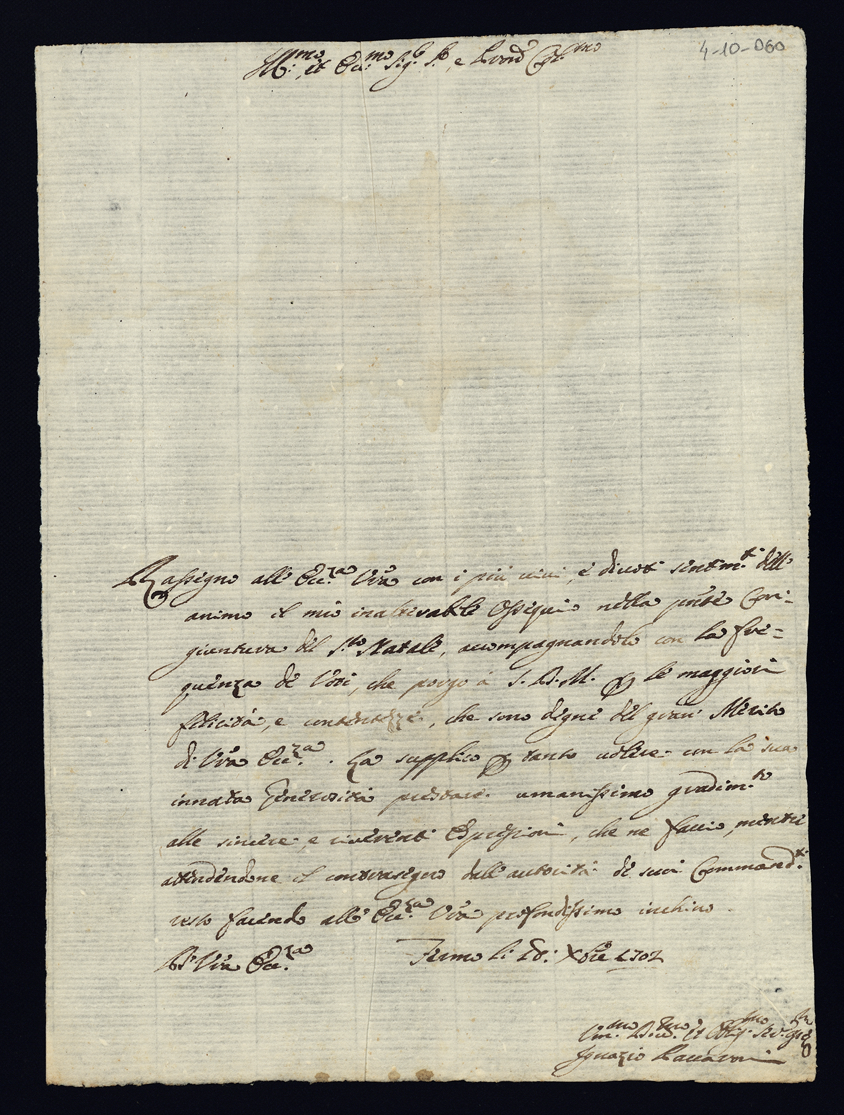 4-10-060
Ill.mo, et Ecc.mo Sig.r S.r, e Pron Col.mo
Rassegno all' Ecc.za Vra con i più vivi, e divoti sentim.ti dell'
animo il mio inalterabile Ossequio nella pnte Con-
giuntura del S.to Natale, accompagnandolo con la fre=
quenza de Voti, che porgo à S. D. M. p le maggiori
felicità, e contentezze, che sono degne del gran Merito
di Vra Ecc.za. La supplico p tanto volere con la sua
innata generosità prestare umanissimo gradim.to
alle sincere, e riverenti espressioni, che ne faccio, mentre
attendendone il contrasegno dall' autorità de suoi Command.ti
resto facendo all' Ecc.za Vra profondissimo inchino
Di Vra Ecc.za Fermo li Xbre 1702
Um.mo D.mo et Obl.mo Ser.
Ignazio